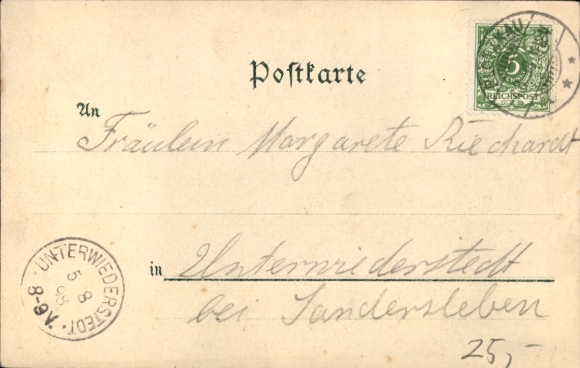 Postkarte
5
REICHSPOST
An
Fräulein Margarete Riechardt
in Unterwiederstedt
bei Sandersleben
UNTERWIEDERSTEDT
5 8
98
8-9 V
25,-